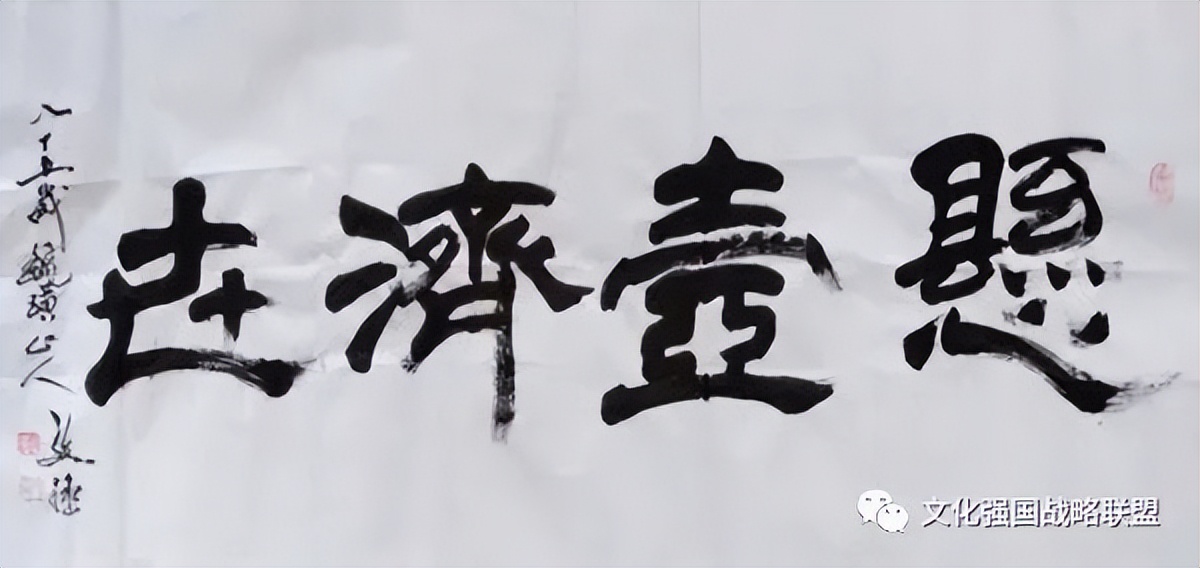 懸壺濟世
八十五歲
山人
文化强国战略联盟